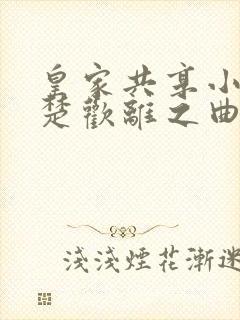 皇家共享小
楚歡離之曲
淺淺煙花漸迷